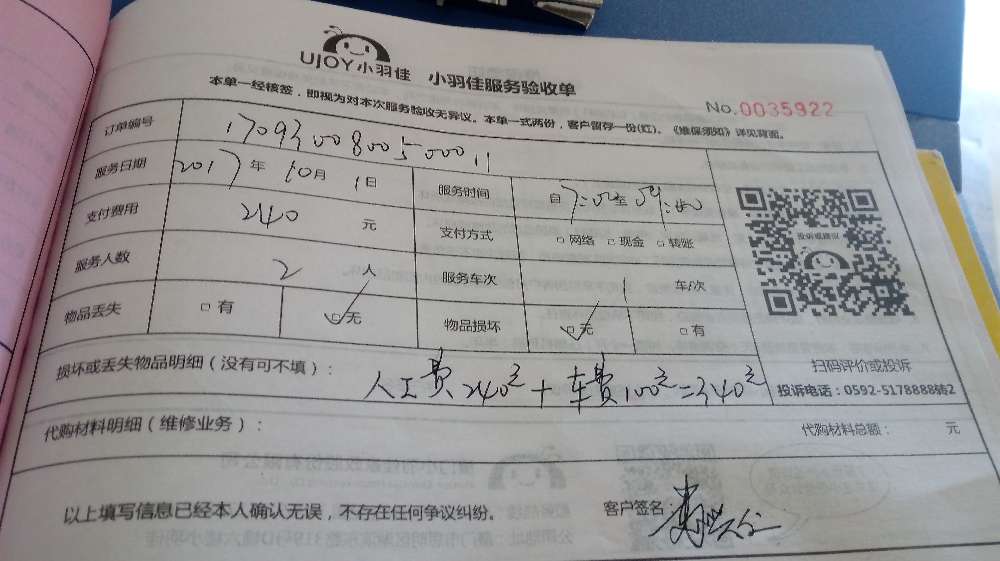 UJOY小羽佳 小羽佳服务验收单
本单一经核签，即视为对本次服务验收无异议。本单一式两份，客户留存一份(红)。《维保须知》详见背面。
No.0035922
订单编号 1709300800500011
服务日期 2017年 10月 1日 服务时间 自 至
支付费用 240 元 支付方式 □网络 □现金 □转账
服务人数 2 人 服务车次 1 车/次
物品丢失 □有 □无 物品损坏 □无 □有
投诉或建议
扫码评价或投诉
投诉电话：0592-5178888转2
损坏或丢失物品明细（没有可不填）： 人工费240元+车费100元=340元
代购材料明细（维修业务）： 代购材料总额： 元
以上填写信息已经本人确认无误，不存在任何争议纠纷。 客户签名：